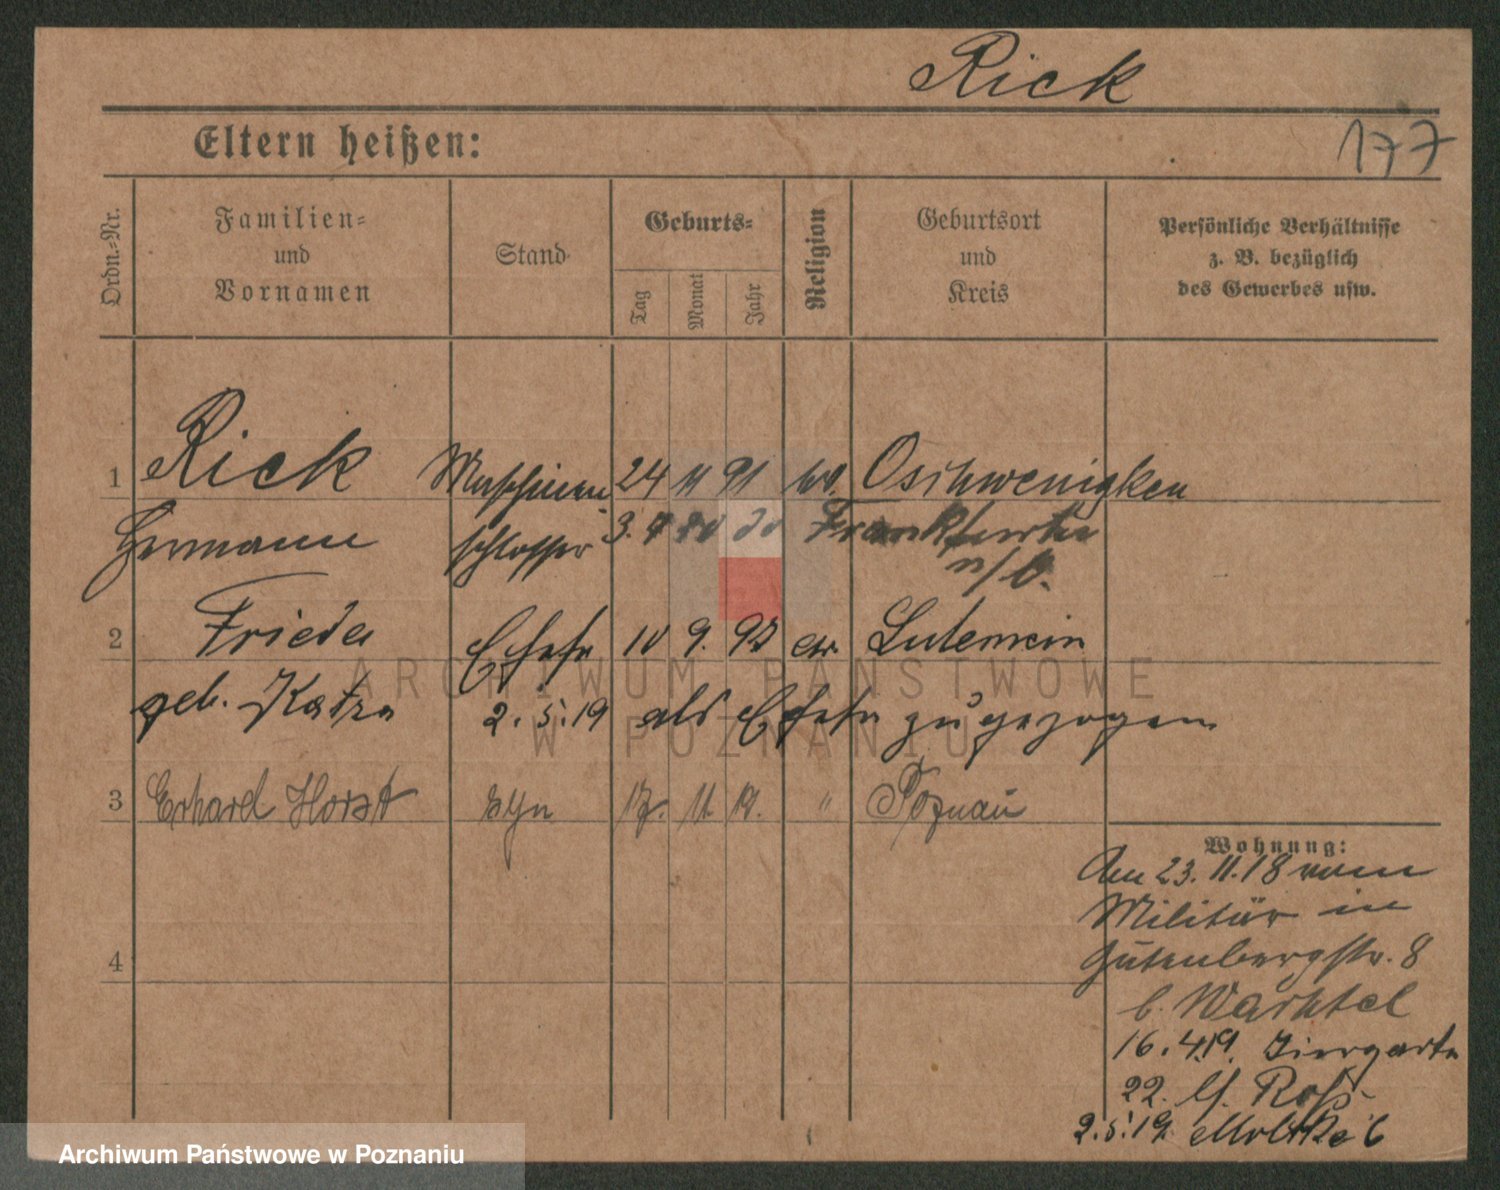 Rick
177
Eltern heißen:
Ordn.-Nr.
Familien- und Vornamen
Stand
Geburts-
Tag
Monat
Jahr
Religion
Geburtsort und Kreis
Persönliche Verhältnisse z. B. bezüglich des Gewerbes usw.
1 Rick Maschinen 24 11 91 Oschwenigken
Hermann schlosser 3. Frankfurt
a/O.
2 Frieda Ehefr 10 9. 92 ev Lutemrin
geb. Katza 2.5.19 als Ehefr zugezogen
3 Erhard Horst 17. 11. 19. " Poznań
Wohnung:
Am 23.11.18 vom
Militär in
Gutenbergstr. 8
b. Wachtel
4
16.4.19. Tiergarten
22. Roß
2.5.19. Moltke 6
ARCHIWUM PAŃSTWOWE
W POZNANIU
Archiwum Państwowe w Poznaniu